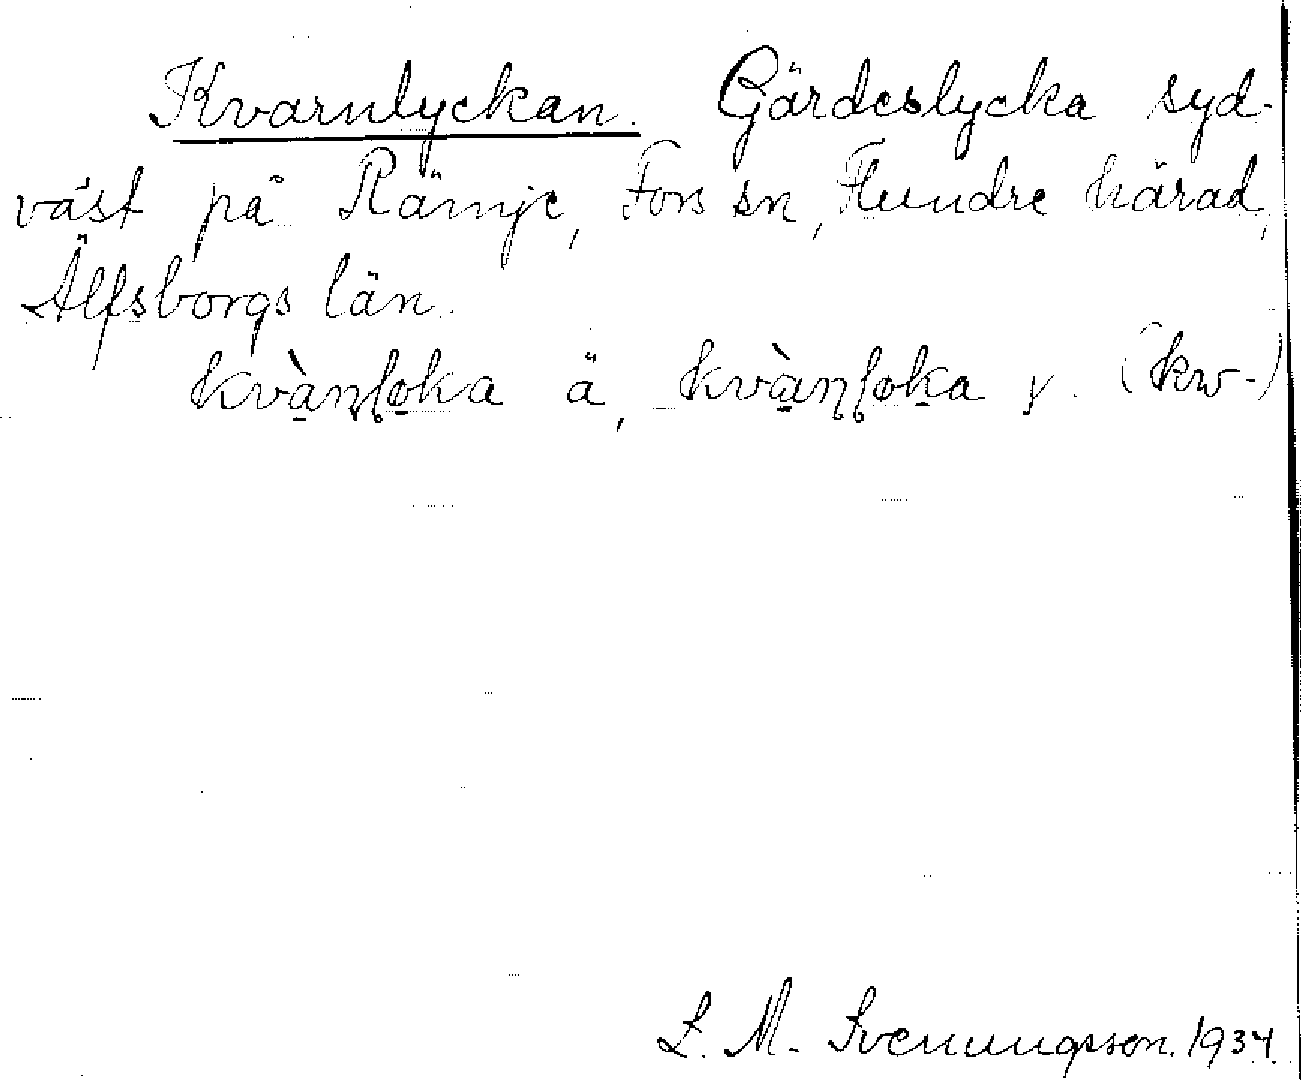 Kvarnlyckan. Gärdeslycka syd-
väst på Rämje, Fors sn, Flundre härad,
Älfsborgs län.
kvàṇḷøka ä, kvàṇḷøka y. (kw-)
L. M. Svenungsson. 1934.